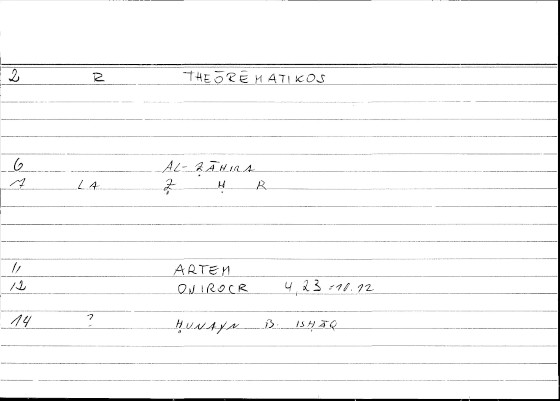 2 R THEŌRĒMATIKOS
6 AL-ẒĀHIRA
7 LA Ẓ H R
11 ARTEM
12 ONIROCR 4,23-10.12
14 ? ḤUNAYN B. ISḤĀQ